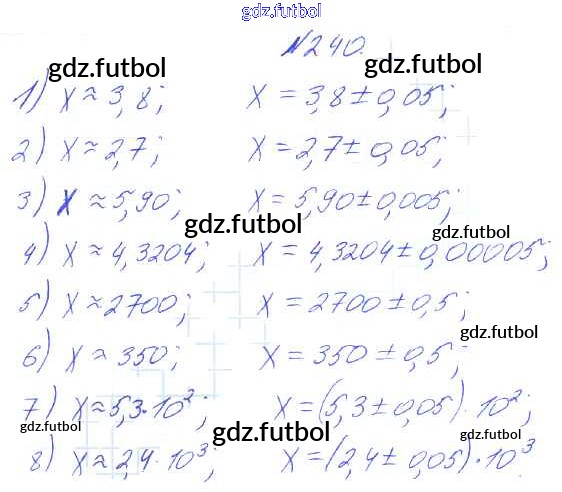 gdz.futbol
№240.
gdz.futbol gdz.futbol
1) x ≈ 3,8; x = 3,8 ± 0,05;
2) x ≈ 2,7; x = 2,7 ± 0,05;
3) x ≈ 5,90; x = 5,90 ± 0,005;
gdz.futbol gdz.futbol
4) x ≈ 4,3204; x = 4,3204 ± 0,00005;
5) x ≈ 2700; x = 2700 ± 0,5;
gdz.futbol
6) x ≈ 350; x = 350 ± 0,5;
7) x ≈ 5,3·10²; x = (5,3 ± 0,05)·10²;
gdz.futbol gdz.futbol gdz.futbol
8) x ≈ 2,4·10³; x = (2,4 ± 0,05)·10³